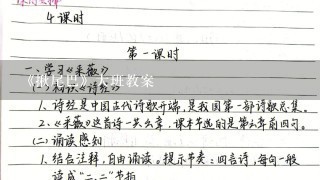 4课时
第一课时
一、学习《采薇》
《揪尾巴》大班教案
(一)初读《诗经》
1、诗经是中国古代诗歌开端,是我国第一部诗歌总集。
2、《采薇》这首诗一共六章,课本节选的是第六章前四句。
(二)诵读感知
1、结合注释,自由诵读。提示节奏:四言诗,每句一般
读成"二、二"节拍